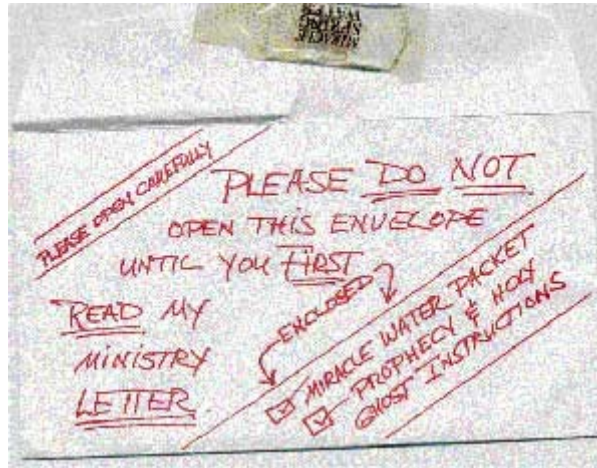 MIRACLE
SPRING
WATER
PLEASE OPEN CAREFULLY
PLEASE DO NOT
OPEN THIS ENVELOPE
UNTIL YOU FIRST
READ MY
MINISTRY
LETTER.
ENCLOSED
MIRACLE WATER PACKET
PROPHECY & HOLY
GHOST INSTRUCTIONS